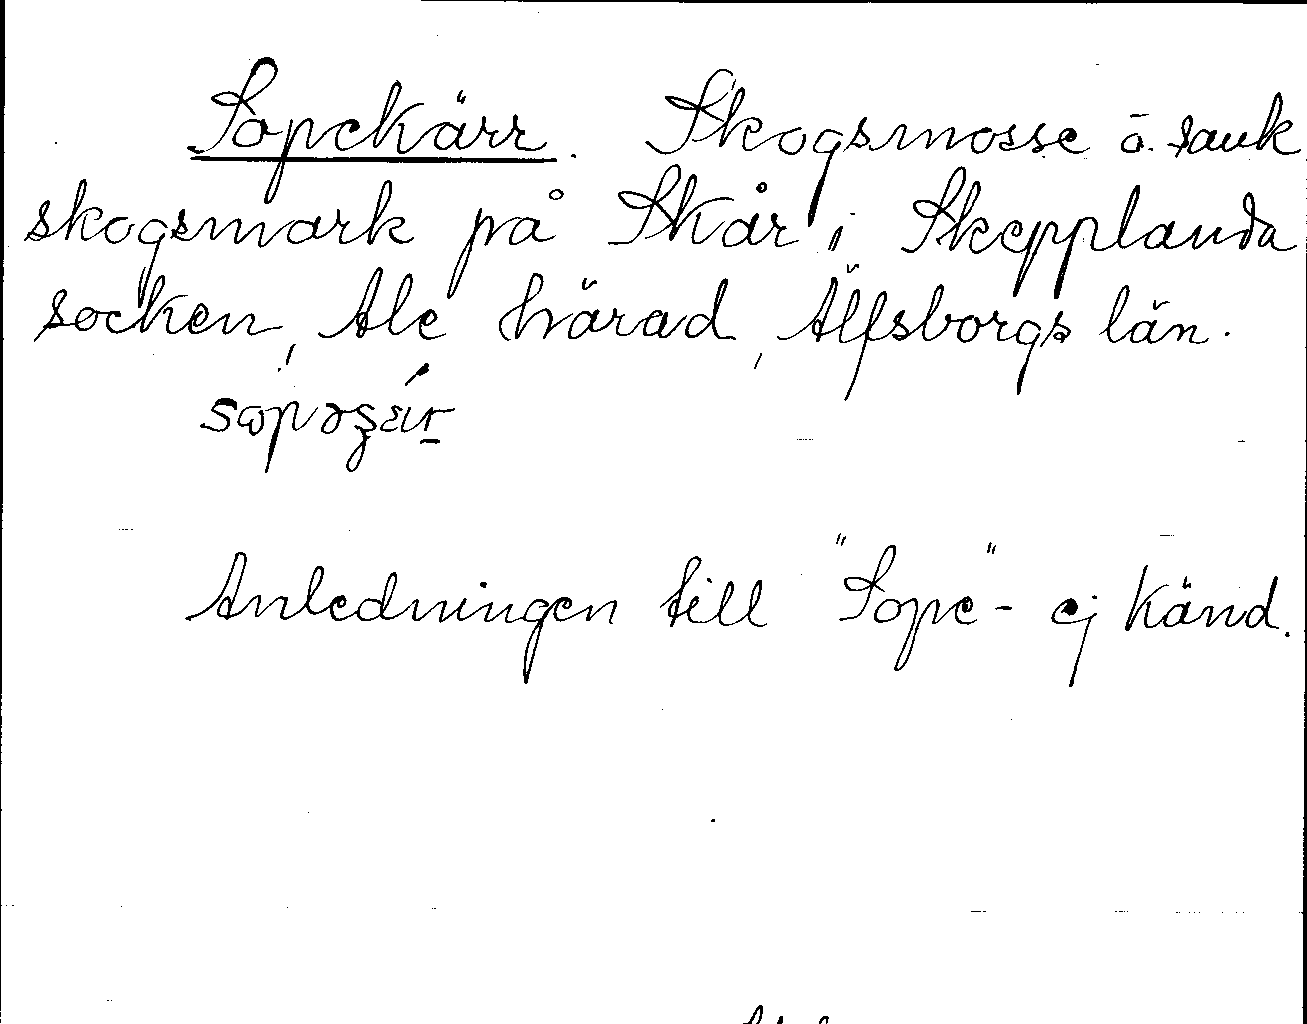 Sopekärr. Skogsmosse o. sank
skogsmark på Skår i Skepplanda
socken, Ale härad, Älfsborgs län.
Anledningen till "Sope"- ej känd.